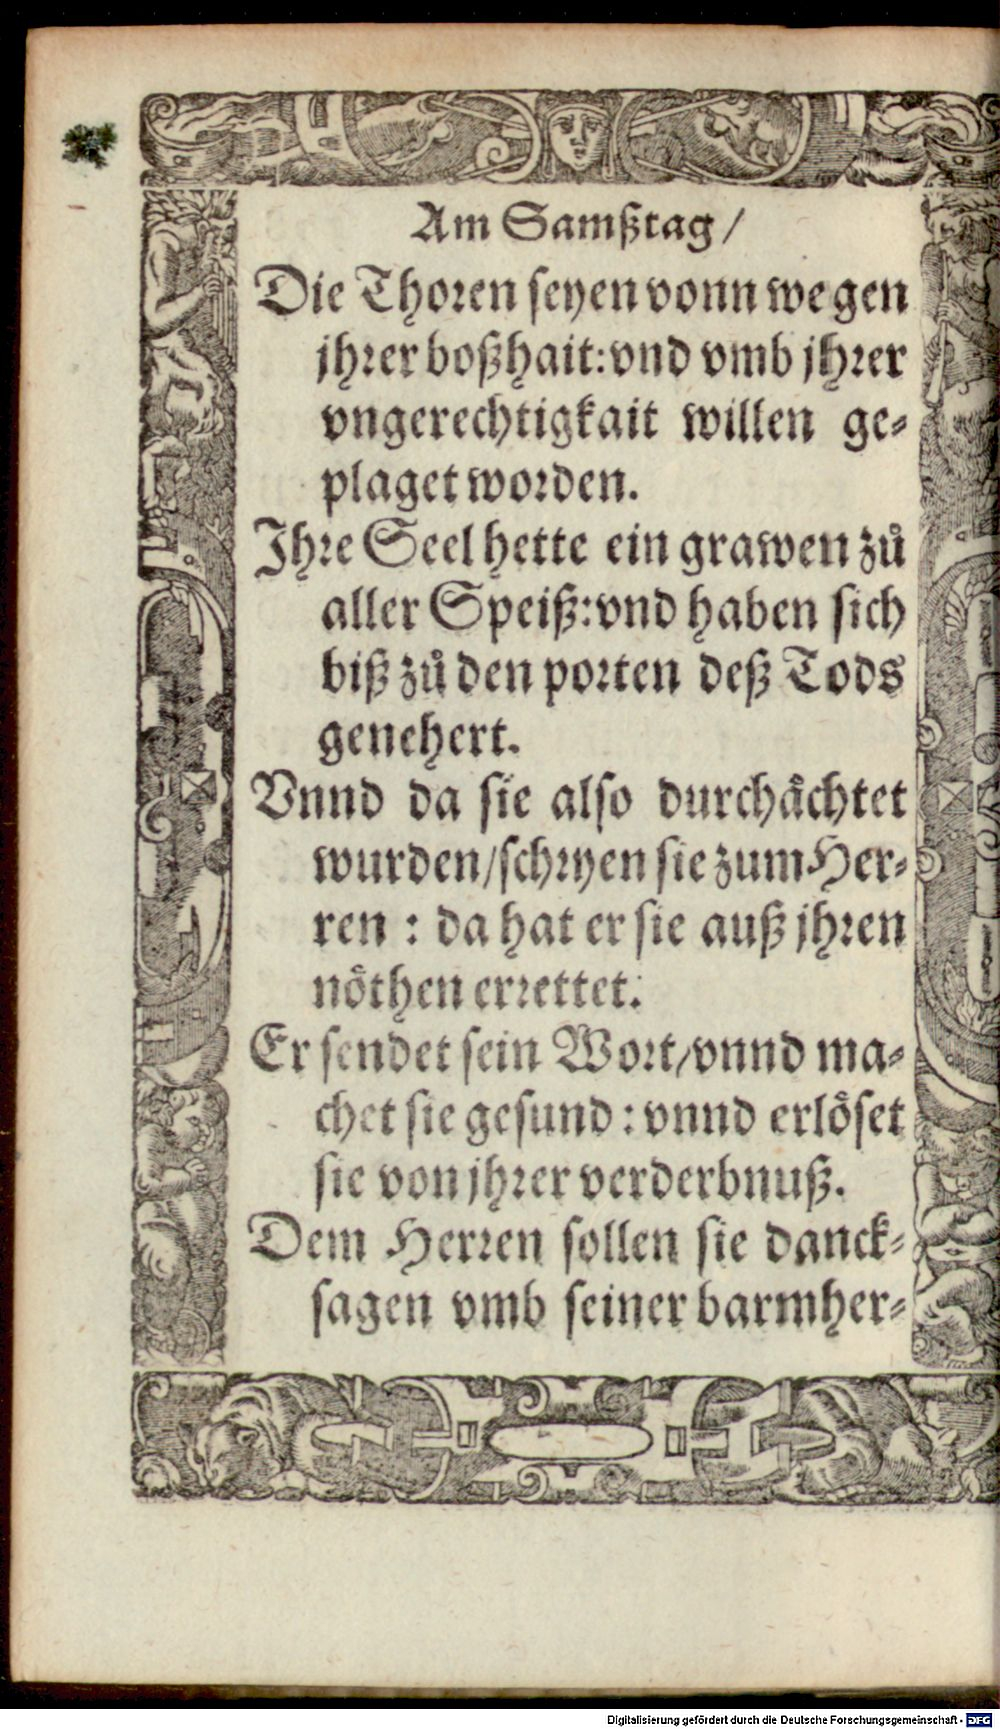 Am Samßtag/
Die Thoren seyen vonn wegen
jhrer boßhait: vnd vmb jhrer
vngerechtigkait willen ge-
plaget worden.
Ihre Seel hette ein grawen zů
aller Speiß: vnd haben sich
biß zů den porten deß Tods
genehert.
Vnnd da sie also durchåchtet
wurden/schryen sie zum Her-
ren : da hat er sie auß jhren
nöthen errettet.
Er sendet sein Wort/vnnd ma-
chet sie gesund : vnnd erlöset
sie von jhrer verderbnuß.
Dem Herren sollen sie danck-
sagen vmb seiner barmher-
Digitalisierung gefördert durch die Deutsche Forschungsgemeinschaft - DFG